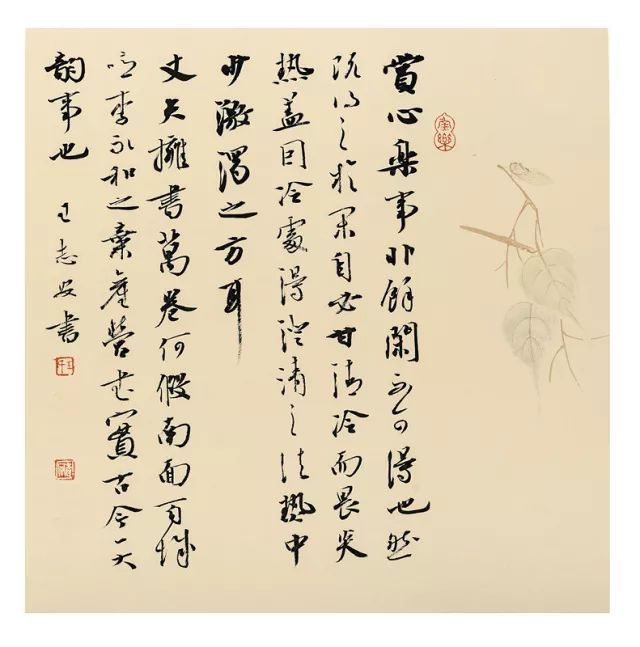 賞心樂事非餘閑不可得也然
既得之於閑自必甘清冷而畏炎
熱蓋因冷處得澄清之法熱中
少激濁之方耳
丈夫擁書萬卷何假南面百城
噫李永和之棄產營書實古今一大
韵事也
王志安书